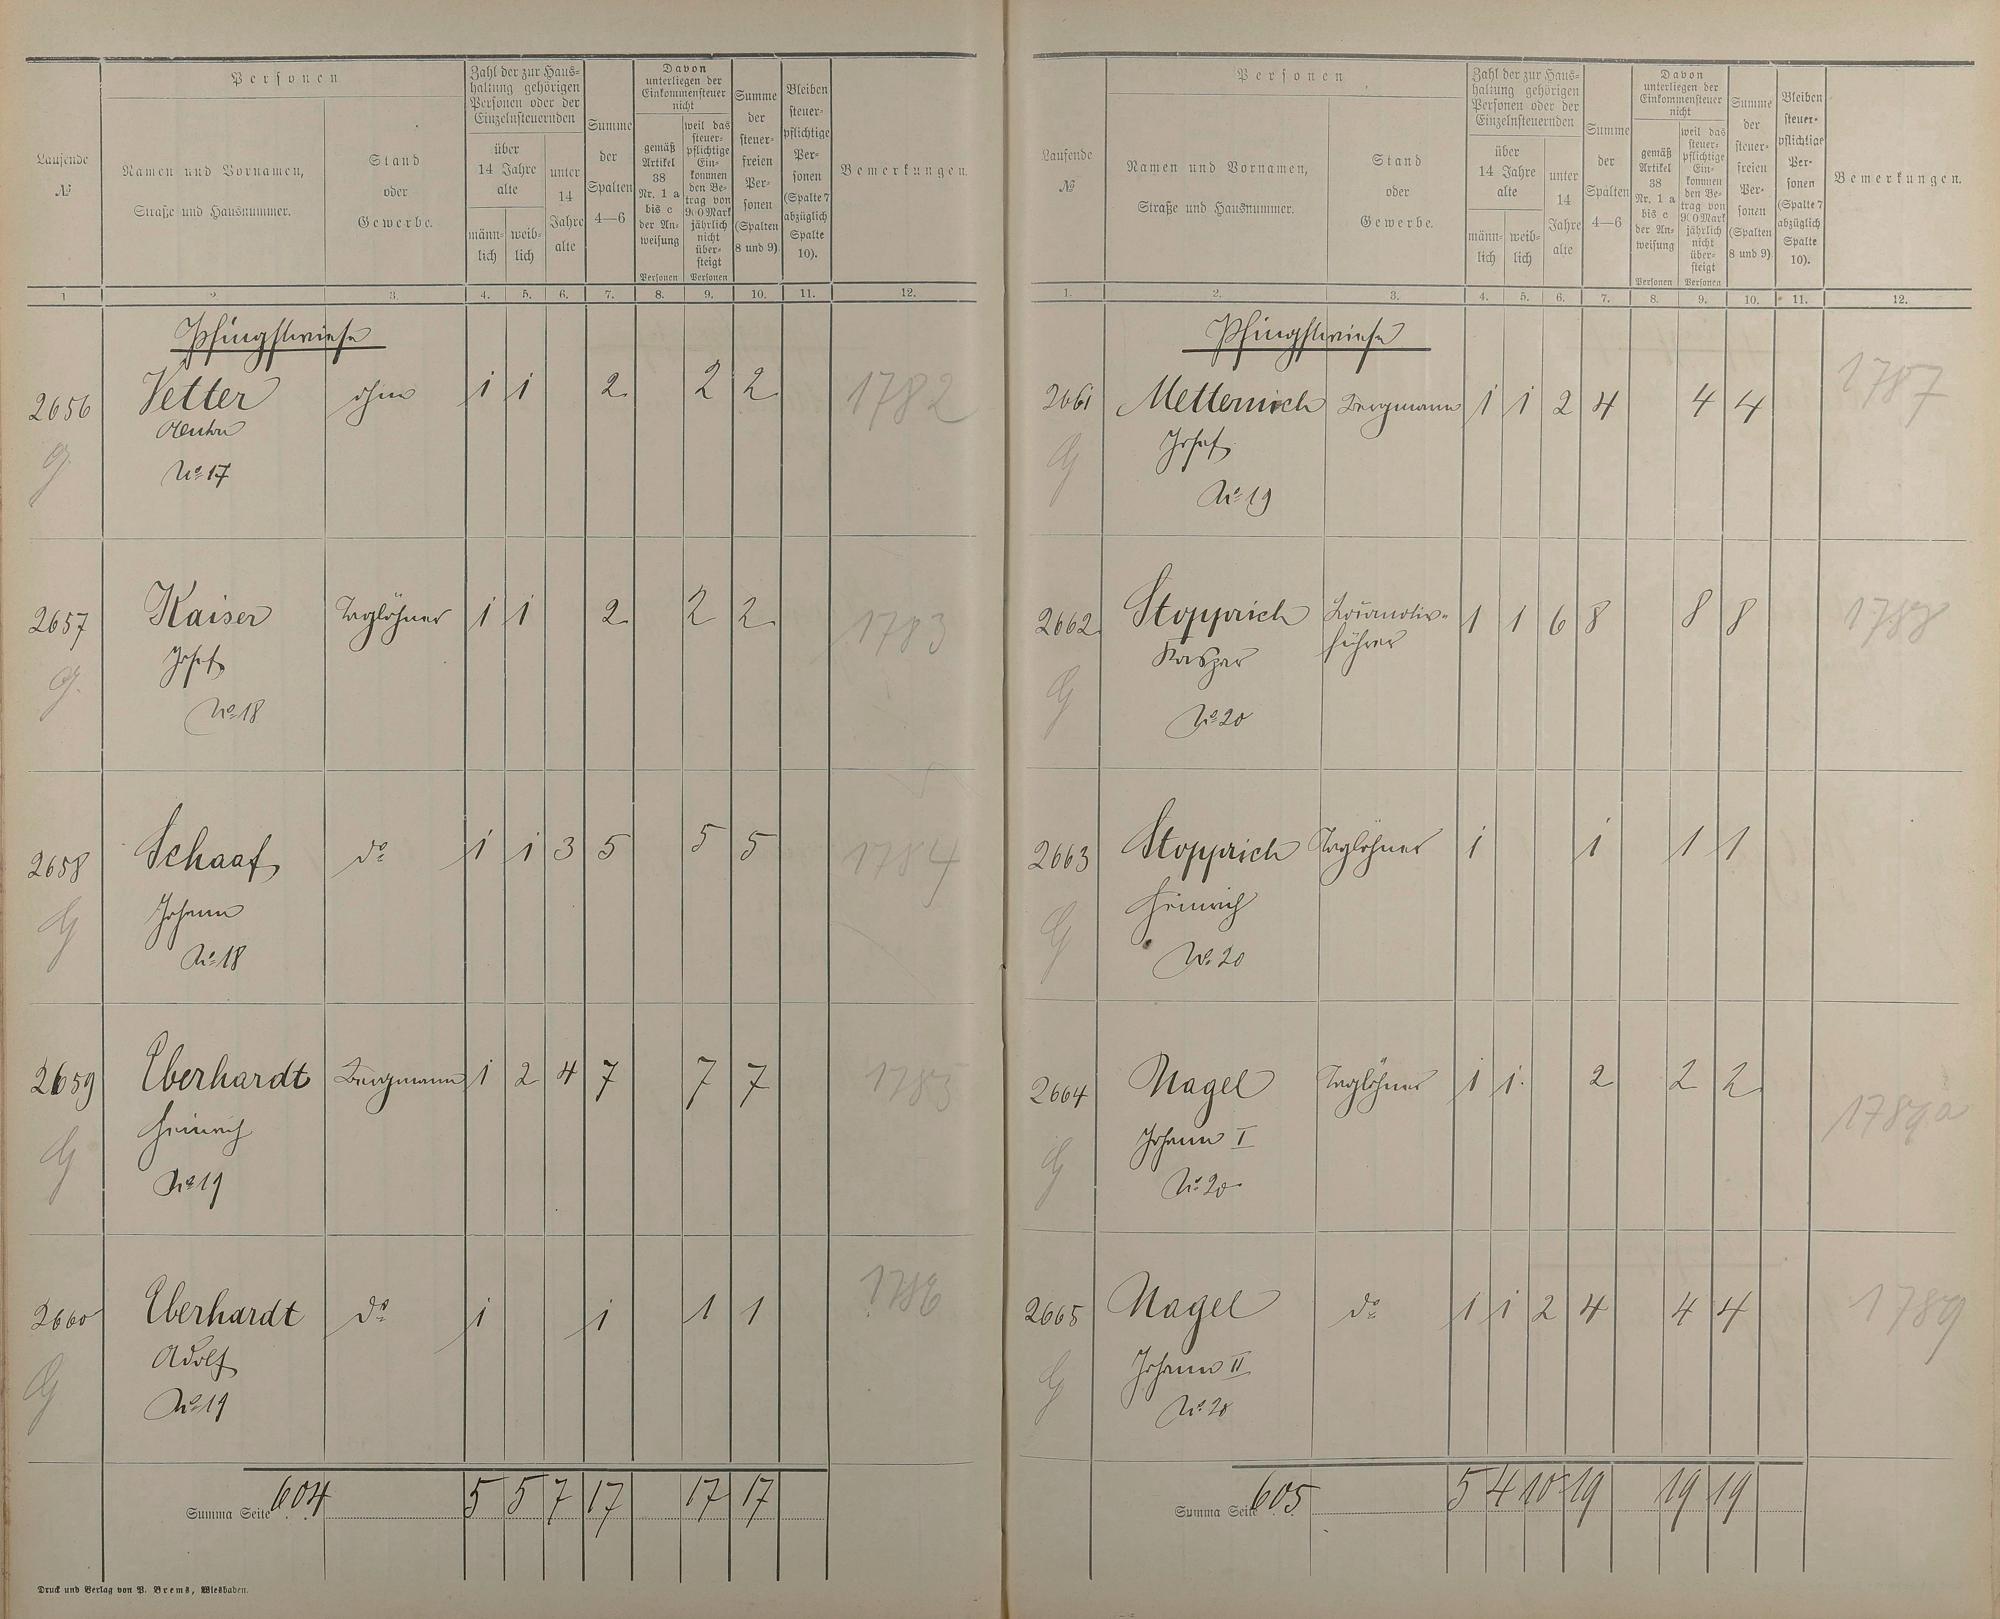 Laufende
№
Personen
Namen und Vornamen,
Straße und Hausnummer.
Stand
oder
Gewerbe.
Zahl der zur Haus-
haltung gehörigen
Personen oder der
Einzelnsteuernden
über
14 Jahre
alte
männ-
lich
weib-
lich
unter
14
Jahre
alte
Summe
der
Spalten
4—6
Davon
unterliegen der
Einkommensteuer
nicht
gemäß
Artikel
38
Nr. 1 a
bis c
der An-
weisung
Personen
weil das
steuer-
pflichtige
Ein-
kommen
den Be-
trag von
900 Mark
jährlich
nicht
über-
steigt
Personen
Summe
der
steuer-
freien
Per-
sonen
(Spalten
8 und 9)
Bleiben
steuer-
pflichtige
Per-
sonen
(Spalte 7
abzüglich
Spalte
10).
Bemerkungen.
1. 2. 3. 4. 5. 6. 7. 8. 9. 10. 11. 12.
Pfingstwiese
2656 Vetter ohne 1 1 2 2 2 1782
G.
No 17
2657 Kaiser Taglöhner 1 1 2 2 2 1783
Josef
G.
No 18
2658 Schaaf do 1 1 3 5 5 5 1784
Johann
G
No 18
2659 Eberhardt Bergmann 1 2 4 7 7 7 1785
Heinrich
G
No 19
2660 Eberhardt do 1 1 1 1 1786
Adolf
G
No 19
Summa Seite 604 5 5 7 17 17 17
Druck und Verlag von P. Brems, Wiesbaden.
Laufende
№
Personen
Namen und Vornamen,
Straße und Hausnummer.
Stand
oder
Gewerbe.
Zahl der zur Haus-
haltung gehörigen
Personen oder der
Einzelnsteuernden
über
14 Jahre
alte
männ-
lich
weib-
lich
unter
14
Jahre
alte
Summe
der
Spalten
4—6
Davon
unterliegen der
Einkommensteuer
nicht
gemäß
Artikel
38
Nr. 1 a
bis c
der An-
weisung
Personen
weil das
steuer-
pflichtige
Ein-
kommen
den Be-
trag von
900 Mark
jährlich
nicht
über-
steigt
Personen
Summe
der
steuer-
freien
Per-
sonen
(Spalten
8 und 9)
Bleiben
steuer-
pflichtige
Per-
sonen
(Spalte 7
abzüglich
Spalte
10).
Bemerkungen.
1. 2. 3. 4. 5. 6. 7. 8. 9. 10. 11. 12.
Pfingstwiese
2661 Metternich Bergmann 1 1 2 4 4 4 1787
Josef
G
No 19
2662 Stopprich Locomotiv- 1 1 6 8 8 8 1788
Kaspar führer
G
No 20
2663 Stopprich Taglöhner 1 1 1 1
Heinrich
G
No 20
2664 Nagel Taglöhner 1 1 2 2 2 1789a
Johann I
G
No 20
2665 Nagel do 1 1 2 4 4 4 1789
Johann II
G
No 20
Summa Seite 605 5 4 10 19 19 19